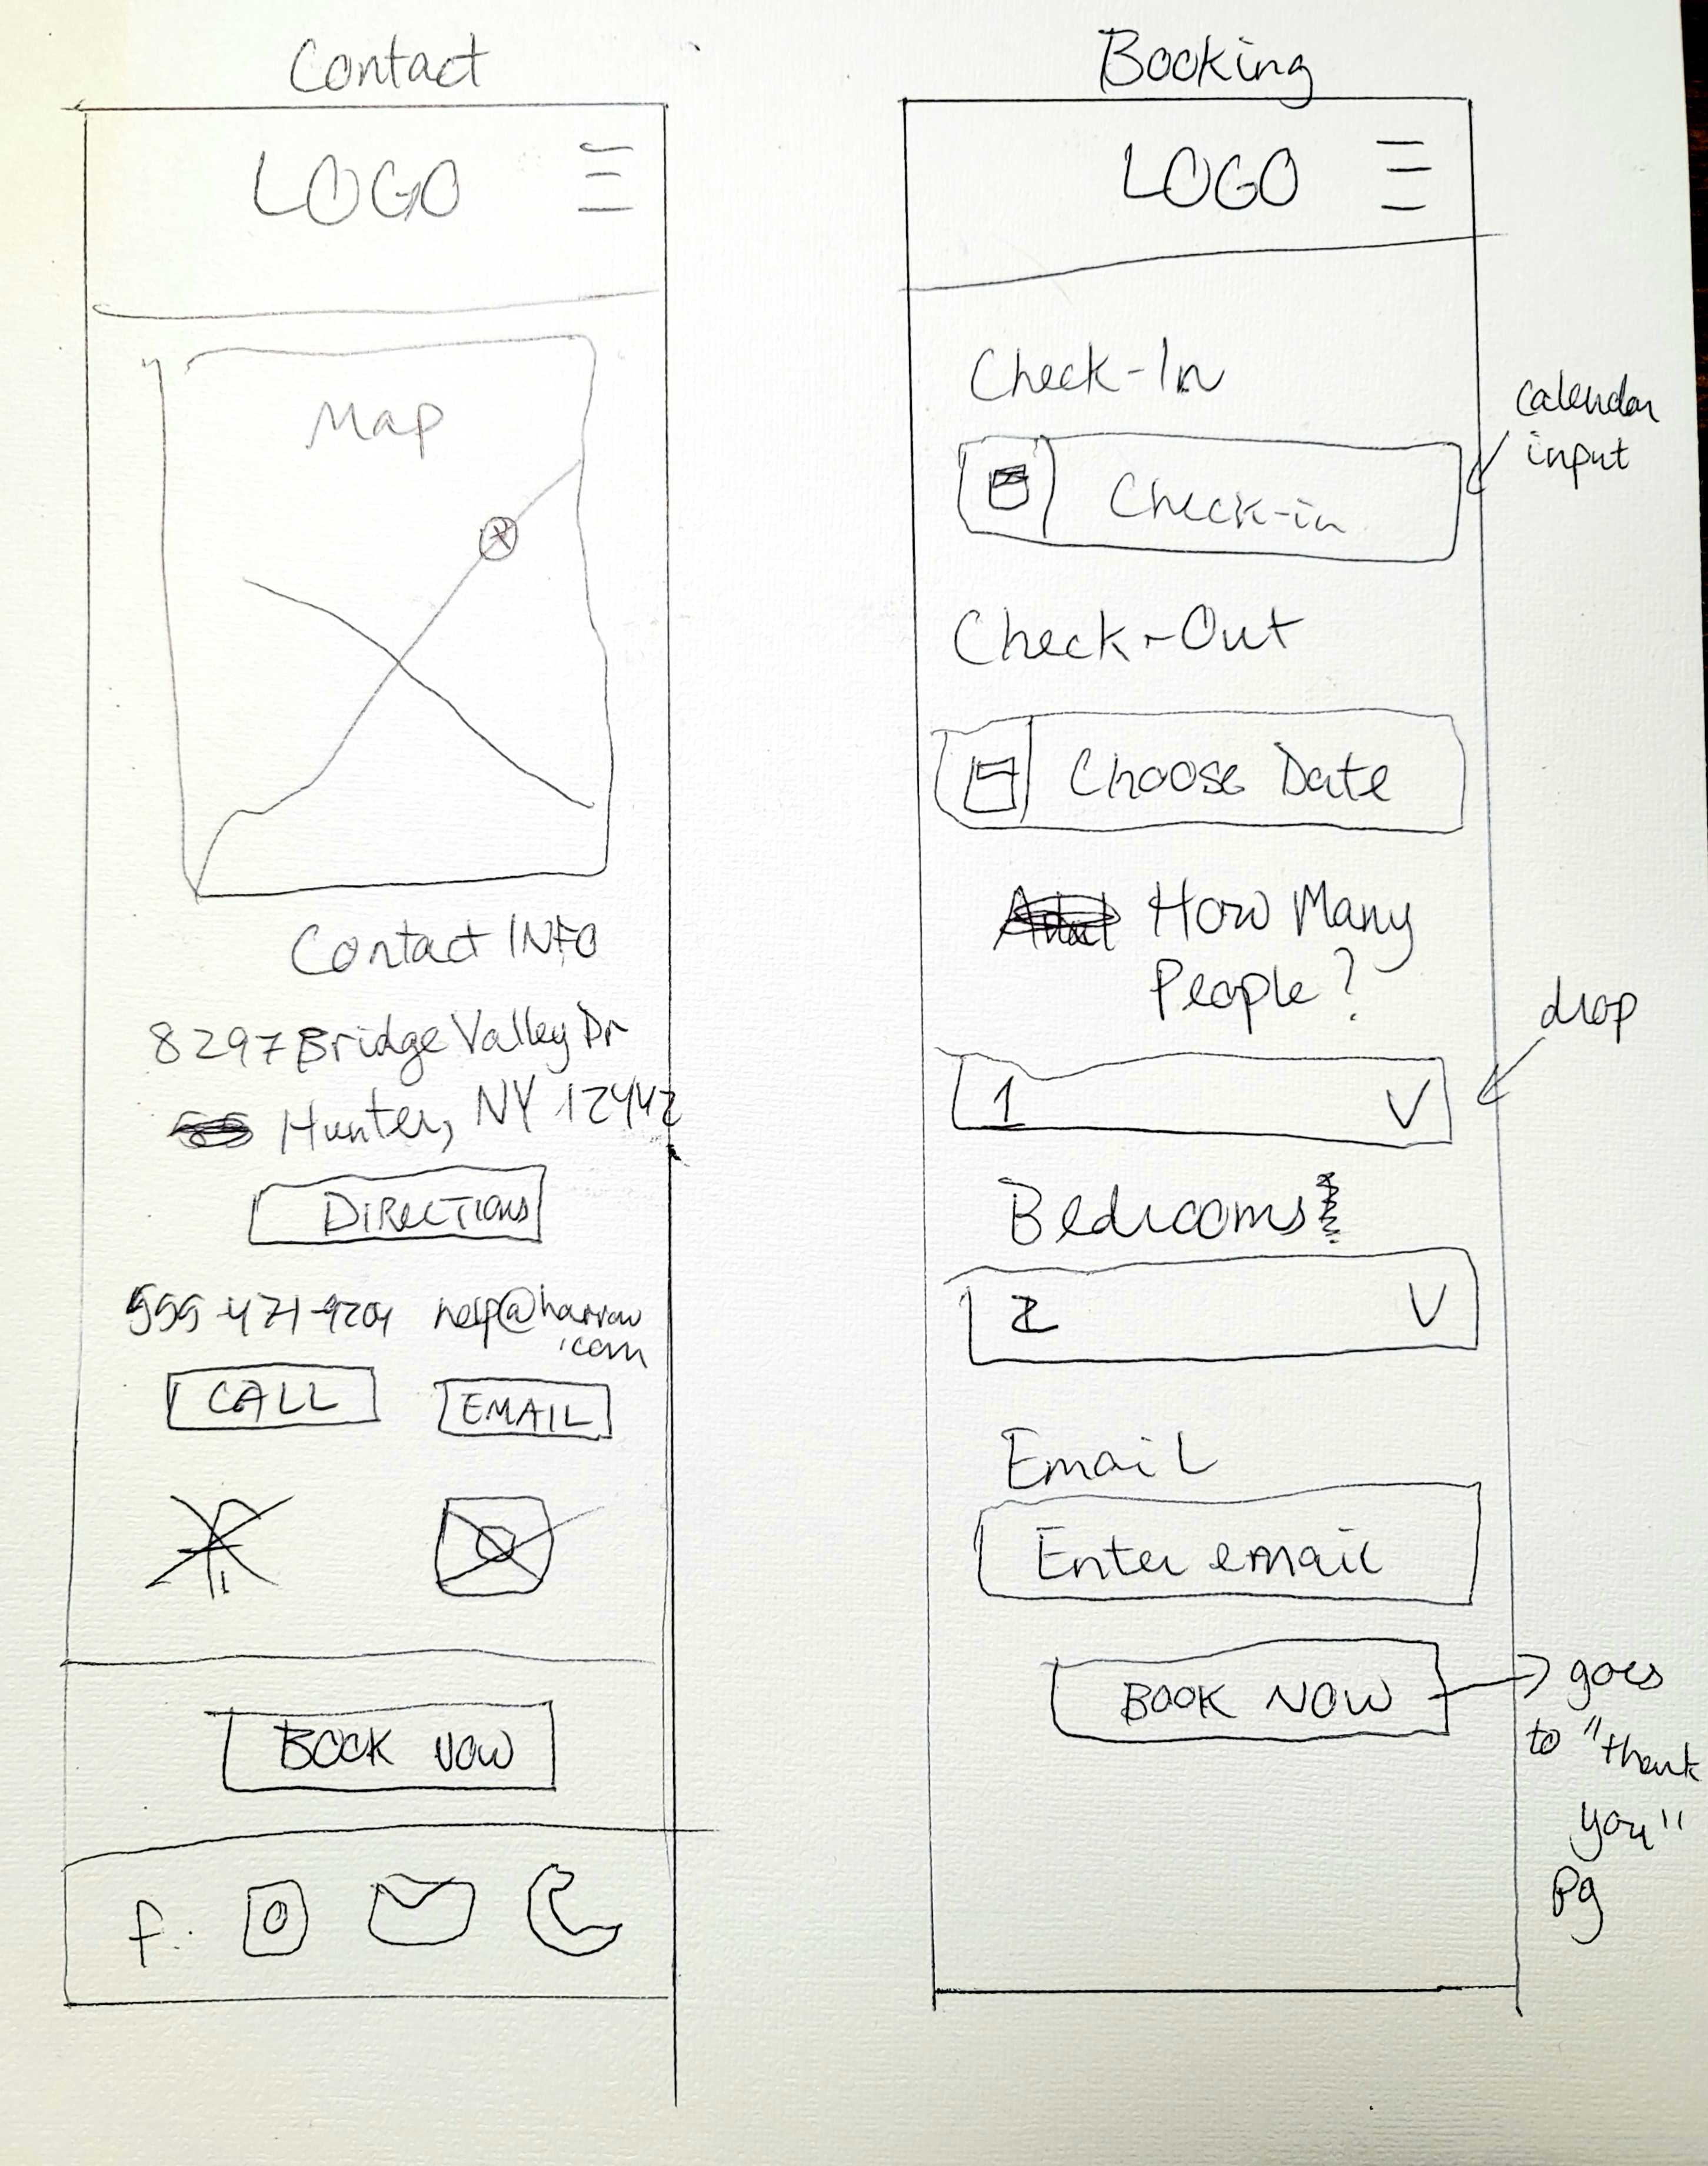 Contact
LOGO
Map
Contact INFO
8297 Bridge Valley Dr
Hunter, NY 12442
DIRECTIONS
help@harrow
.com
CALL
EMAIL
BOOK NOW
f
Booking
LOGO
Check-In
calendar
input
Check-in
Check-Out
Choose Date
How Many
People?
drop
1
V
Bedrooms
2
V
Email
Enter email
BOOK NOW
goes
to "thank
you"
pg